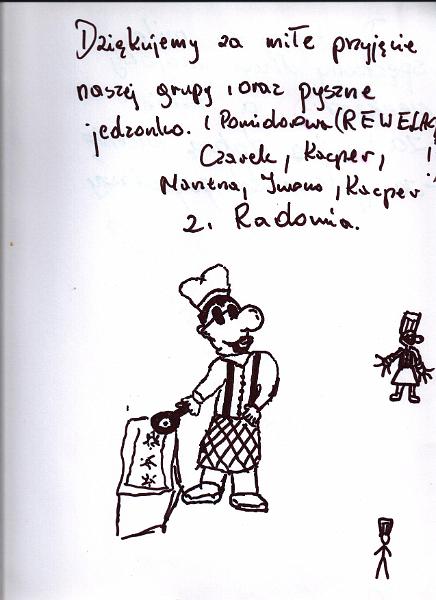 Dziękujemy za miłe przyjęcie
naszej grupy i oraz pyszne
jedzonko. ( Pomidorowa (REWELAC
Czarek, Kacper, !
Marzena, Iwona, Kacper
z. Radomia.